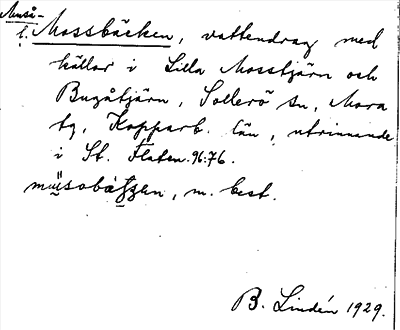 Amså-
l. Mossbäcken, vattendrag med
källor i Lilla Mosstjärn och
Bugåtjärn, Sollerö sn, Mora
tg, Kopparb. län, utrinnande
i St. Flaten. 96:76.
m. best.
B. Lindén 1929.